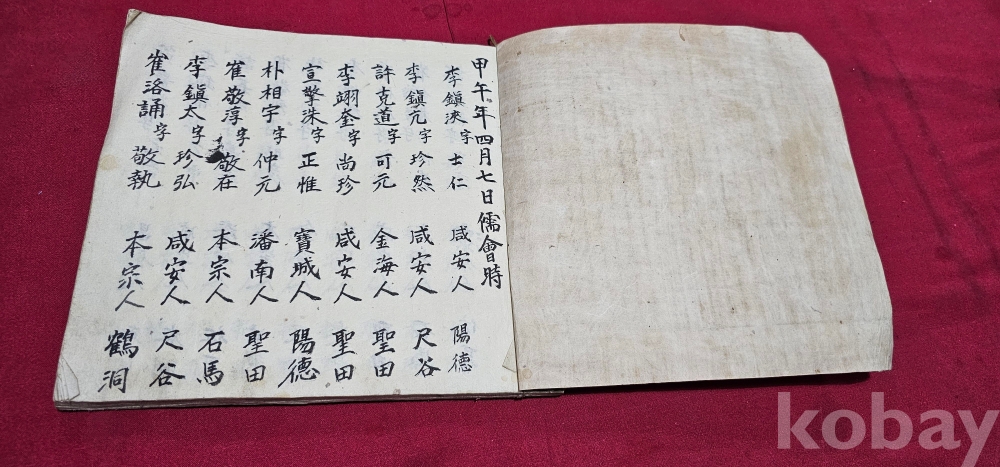 甲午年四月七日儒會時
李鎭浹字士仁 咸安人 陽德
李鎭元字珍然 咸安人 尺谷
許克道字可元 金海人 聖田
李翊奎字尚珍 咸安人 聖田
宣擎洙字正惟 寶城人 陽德
朴相宇字仲元 潘南人 聖田
崔敬淳字敬在 本宗人 石馬
李鎭太字珍弘 咸安人 尺谷
崔洛誦字敬執 本宗人 鶴洞
kobay